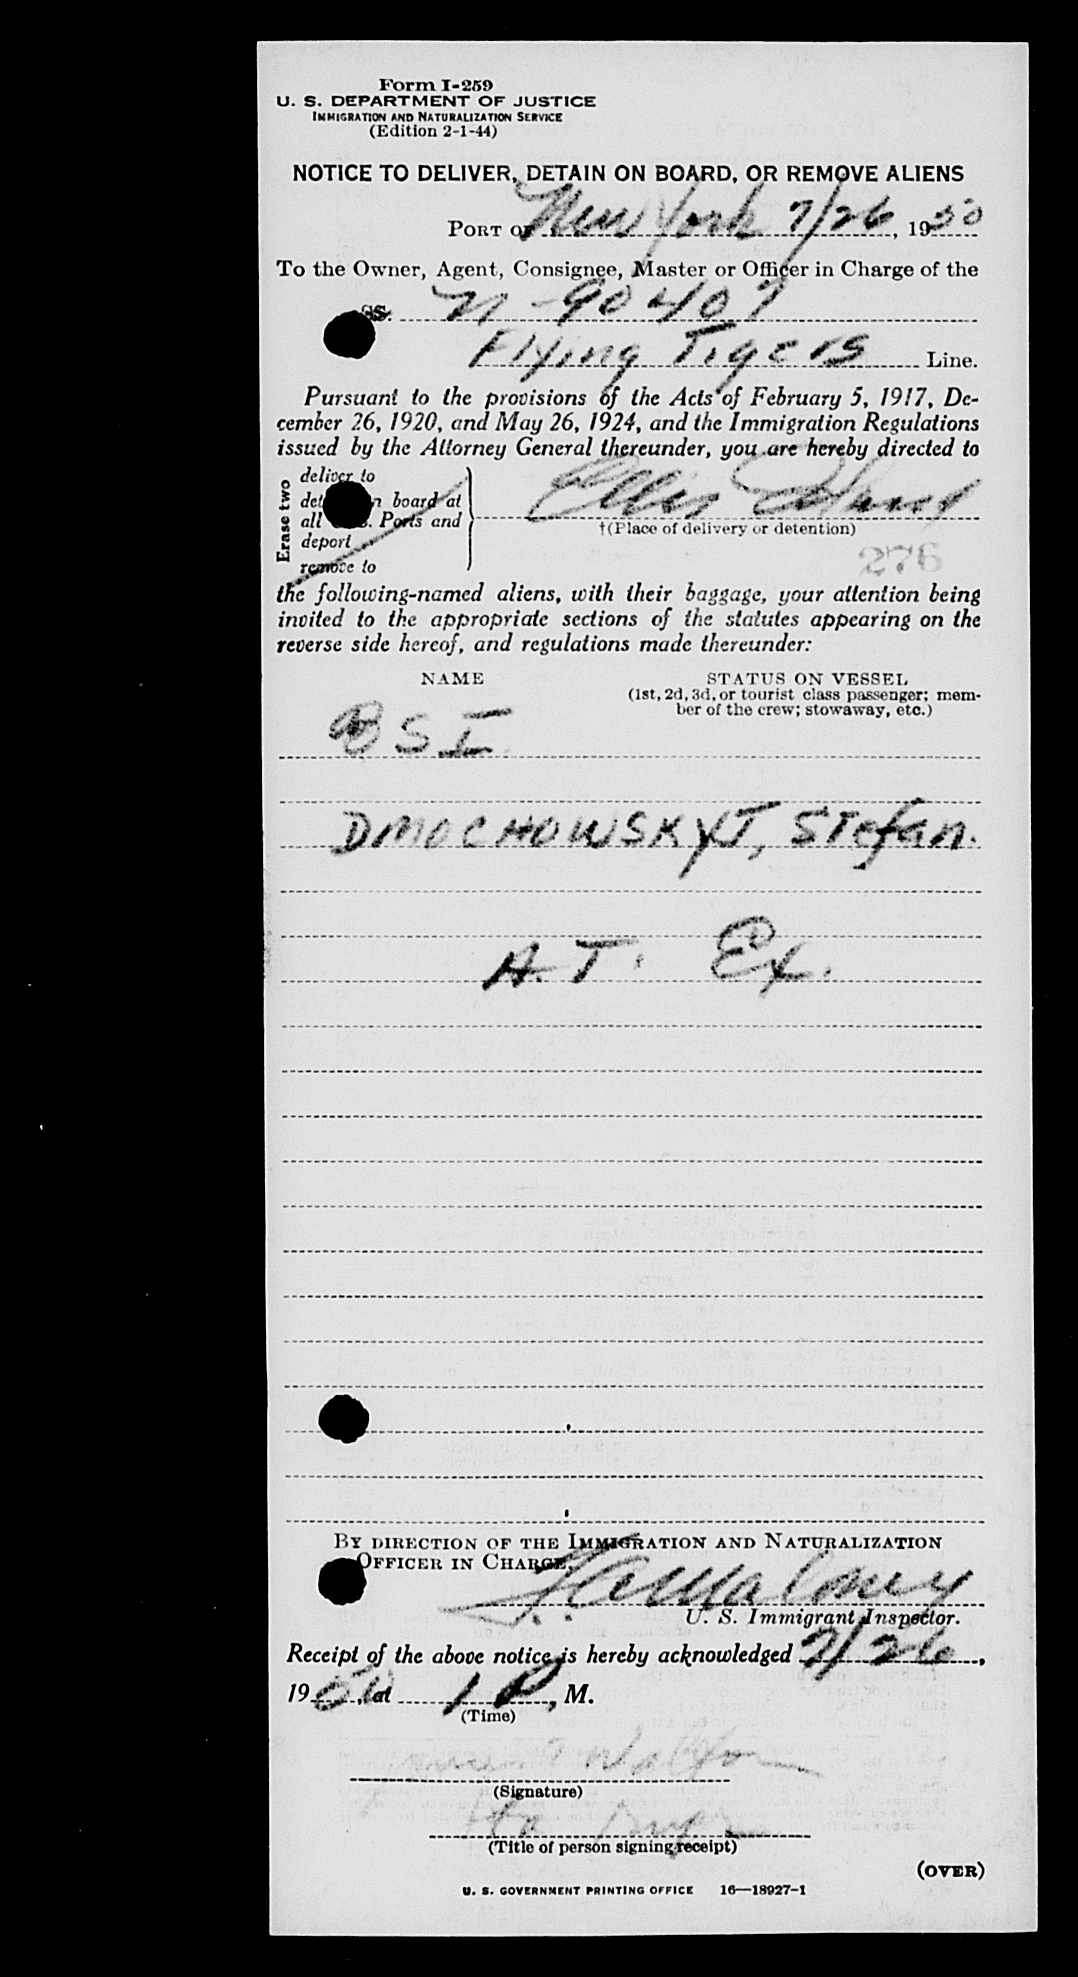 Form I-259
U. S. DEPARTMENT OF JUSTICE
IMMIGRATION AND NATURALIZATION SERVICE
(Edition 2-1-44)
NOTICE TO DELIVER, DETAIN ON BOARD, OR REMOVE ALIENS
PORT OF New York 7/26, 1950
To the Owner, Agent, Consignee, Master or Officer in Charge of the
SS. N-90407
Flying Tigers Line.
Pursuant to the provisions of the Acts of February 5, 1917, De-
cember 26, 1920, and May 26, 1924, and the Immigration Regulations
issued by the Attorney General thereunder, you are hereby directed to
Erase two
deliver to
board at
all Ports and
deport
remove to
Ellis Island
†(Place of delivery or detention)
276
the following-named aliens, with their baggage, your attention being
invited to the appropriate sections of the statutes appearing on the
reverse side hereof, and regulations made thereunder:
NAME STATUS ON VESSEL
(1st, 2d, 3d, or tourist class passenger; mem-
ber of the crew; stowaway, etc.)
BSI
DMOCHOWSKYJ, Stefan.
A.T. Ex.
BY DIRECTION OF THE IMMIGRATION AND NATURALIZATION
OFFICER IN CHARGE,
Maloney
U. S. Immigrant Inspector.
Receipt of the above notice is hereby acknowledged 7/26,
1950, at 1 P, M.
(Time)
(Signature)
(Title of person signing receipt)
(OVER)
U. S. GOVERNMENT PRINTING OFFICE 16—18927-1